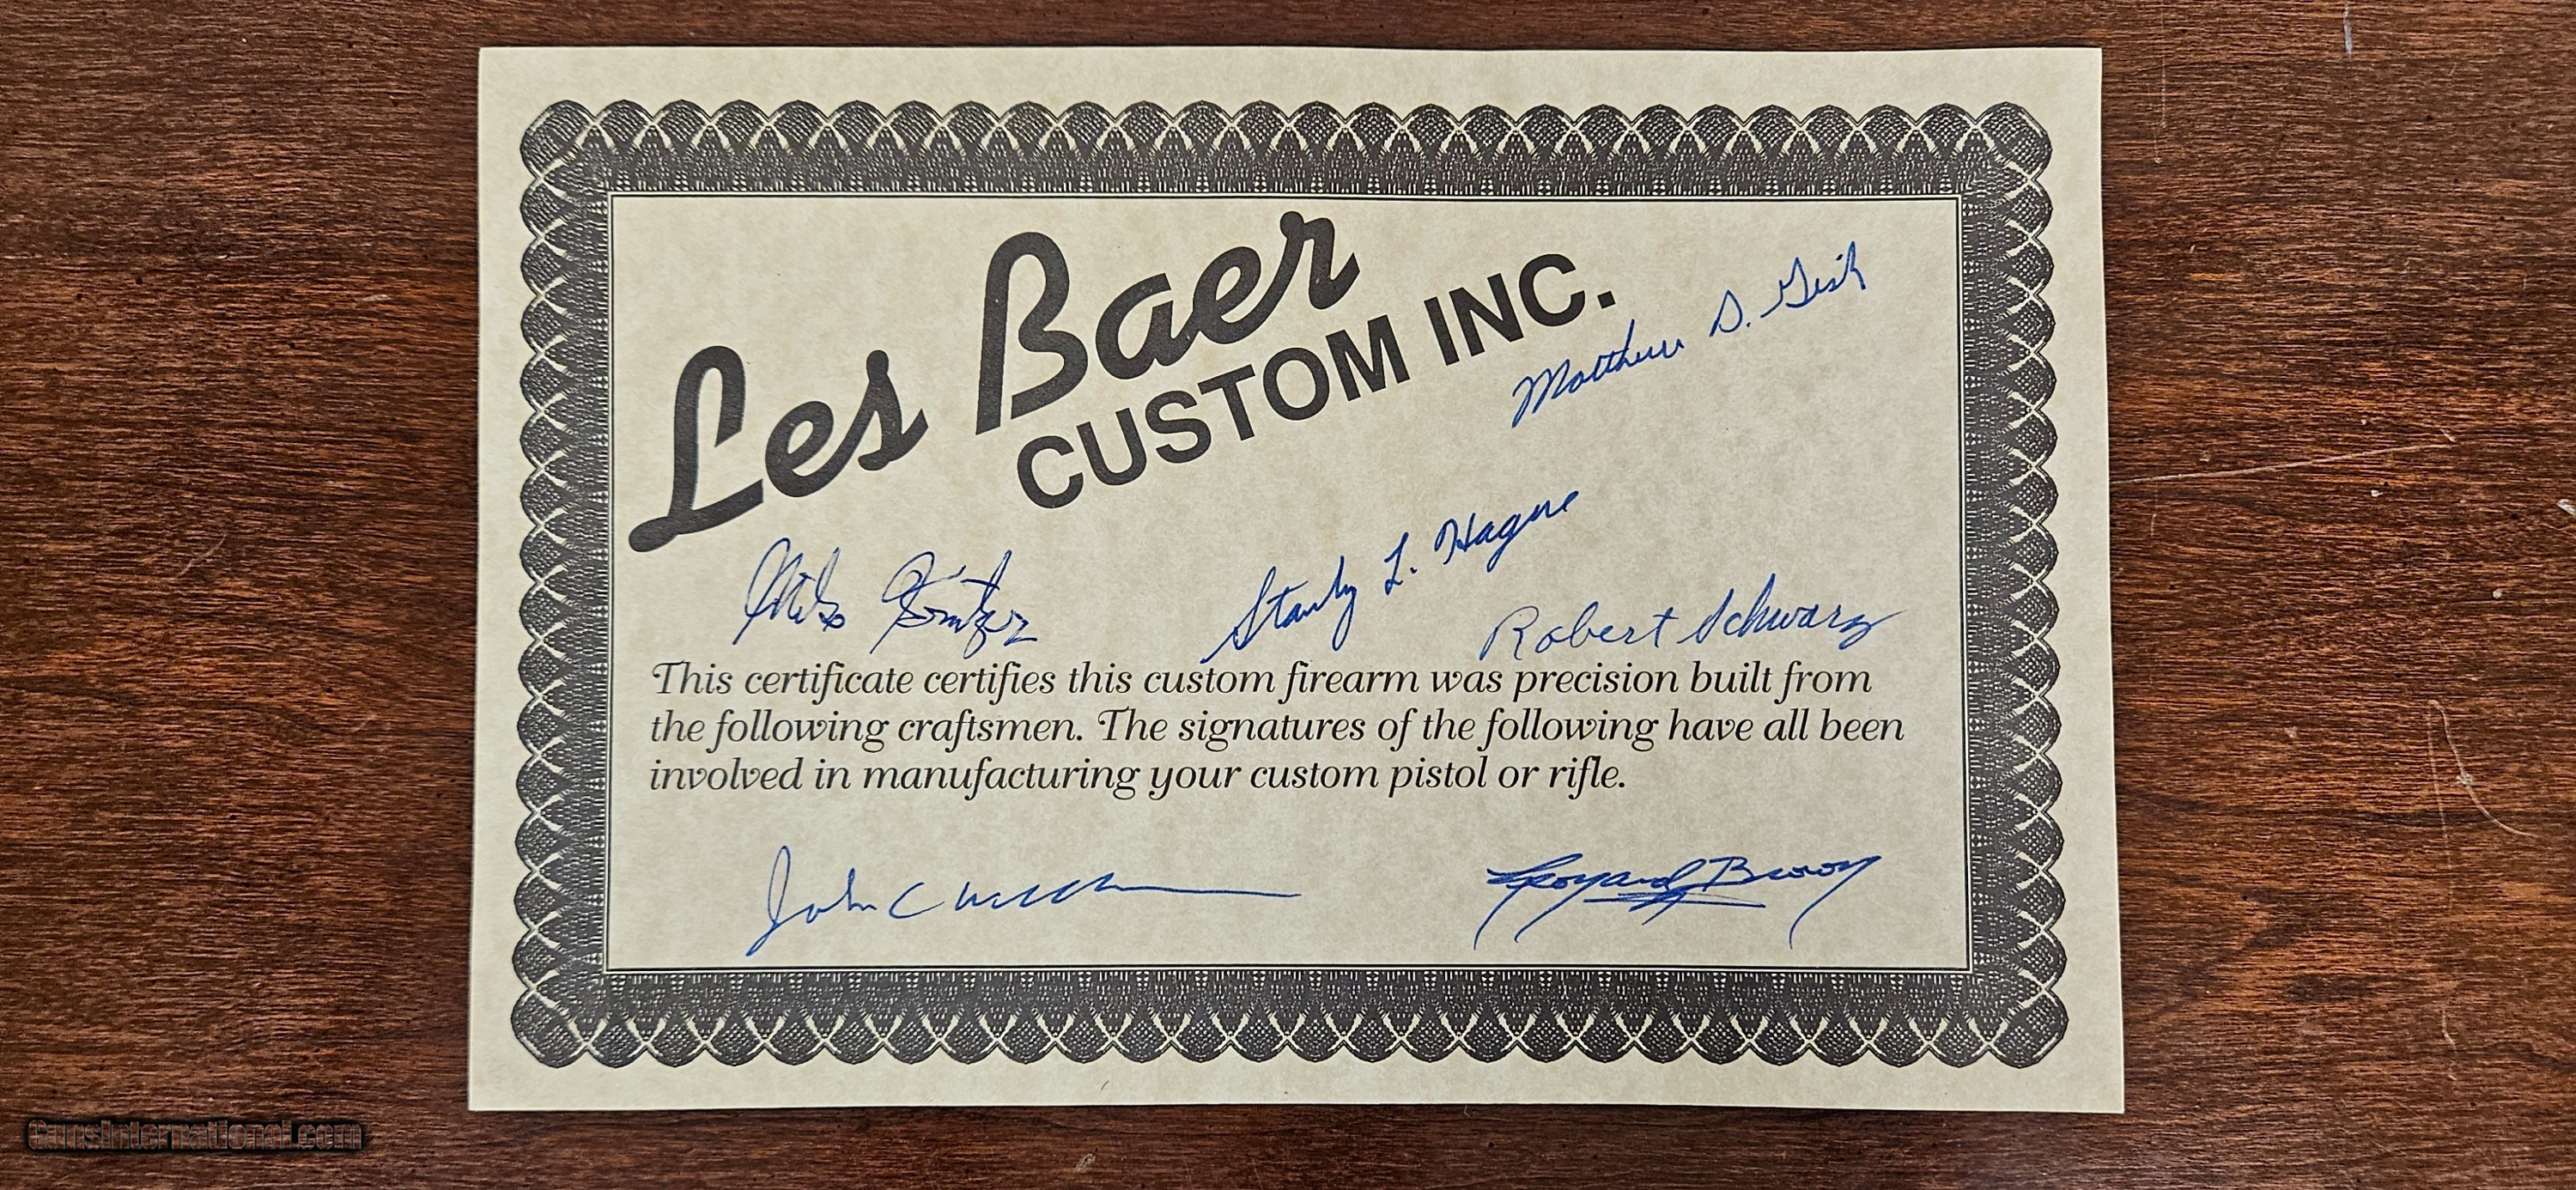 Les Baer
CUSTOM INC.
Matthew D. Gish
Stanley L. Hagne
Robert Schwarz
This certificate certifies this custom firearm was precision built from
the following craftsmen. The signatures of the following have all been
involved in manufacturing your custom pistol or rifle.
John
Brown
GunsInternational.com